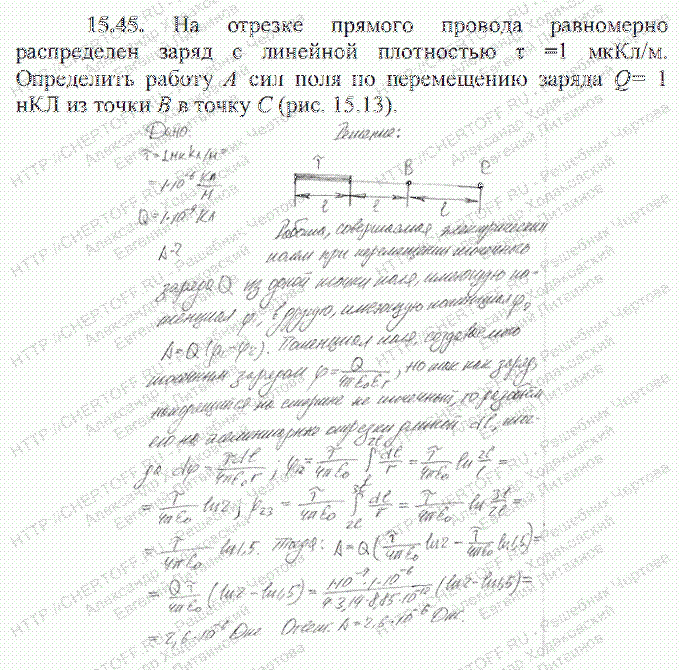 15.45. На отрезке прямого провода равномерно
распределен заряд с линейной плотностью τ =1 мкКл/м.
Определить работу A сил поля по перемещению заряда Q= 1
нКЛ из точки B в точку C (рис. 15.13).
Дано: Решение:
τ=1мкКл/м=
=1·10⁻⁶ Кл/м
Q=1·10⁻⁹Кл
A-?
τ B C
l l l
Работа, совершаемая электрическим
полем при перемещении точечного
заряда Q из одной точки поля, имеющую по-
тенциал φ₁, в другую, имеющую потенциал φ₂
A=Q(φ₁-φ₂). Потенциал поля, создаваемого
точечным зарядом φ=Q/4πε₀r, но так как заряд,
находящийся на стержне не точечный, то разобьём
его на элементарные отрезки длиной dl, тог-
да dφ=τdl/4πε₀r; = τ/4πε₀ ∫ dl/r = τ/4πε₀ ln 2l/l =
= τ/4πε₀ ln2; = τ/4πε₀ ∫ dl/r = τ/4πε₀ ln 3l/2l =
= τ/4πε₀ ln1,5. Тогда: A=Q(τ/4πε₀ ln2 - τ/4πε₀ ln1,5)=
= Qτ/4πε₀ (ln2-ln1,5)= 1·10⁻⁹·1·10⁻⁶/4·3,14·8,85·10⁻¹² (ln2-ln1,5)=
=2,6·10⁻⁶ Дж Ответ: A=2,6·10⁻⁶ Дж.
HTTP://CHERTOFF.RU - Решебник Чертова
Александр Ходаковский
Евгений Литвинов